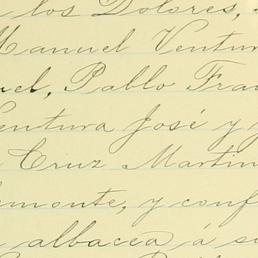 los Dolores,
Manuel Ventur
uel, Pablo Fran
Ventura José y
Cruz Martin
emonte, y conf
albacea á su